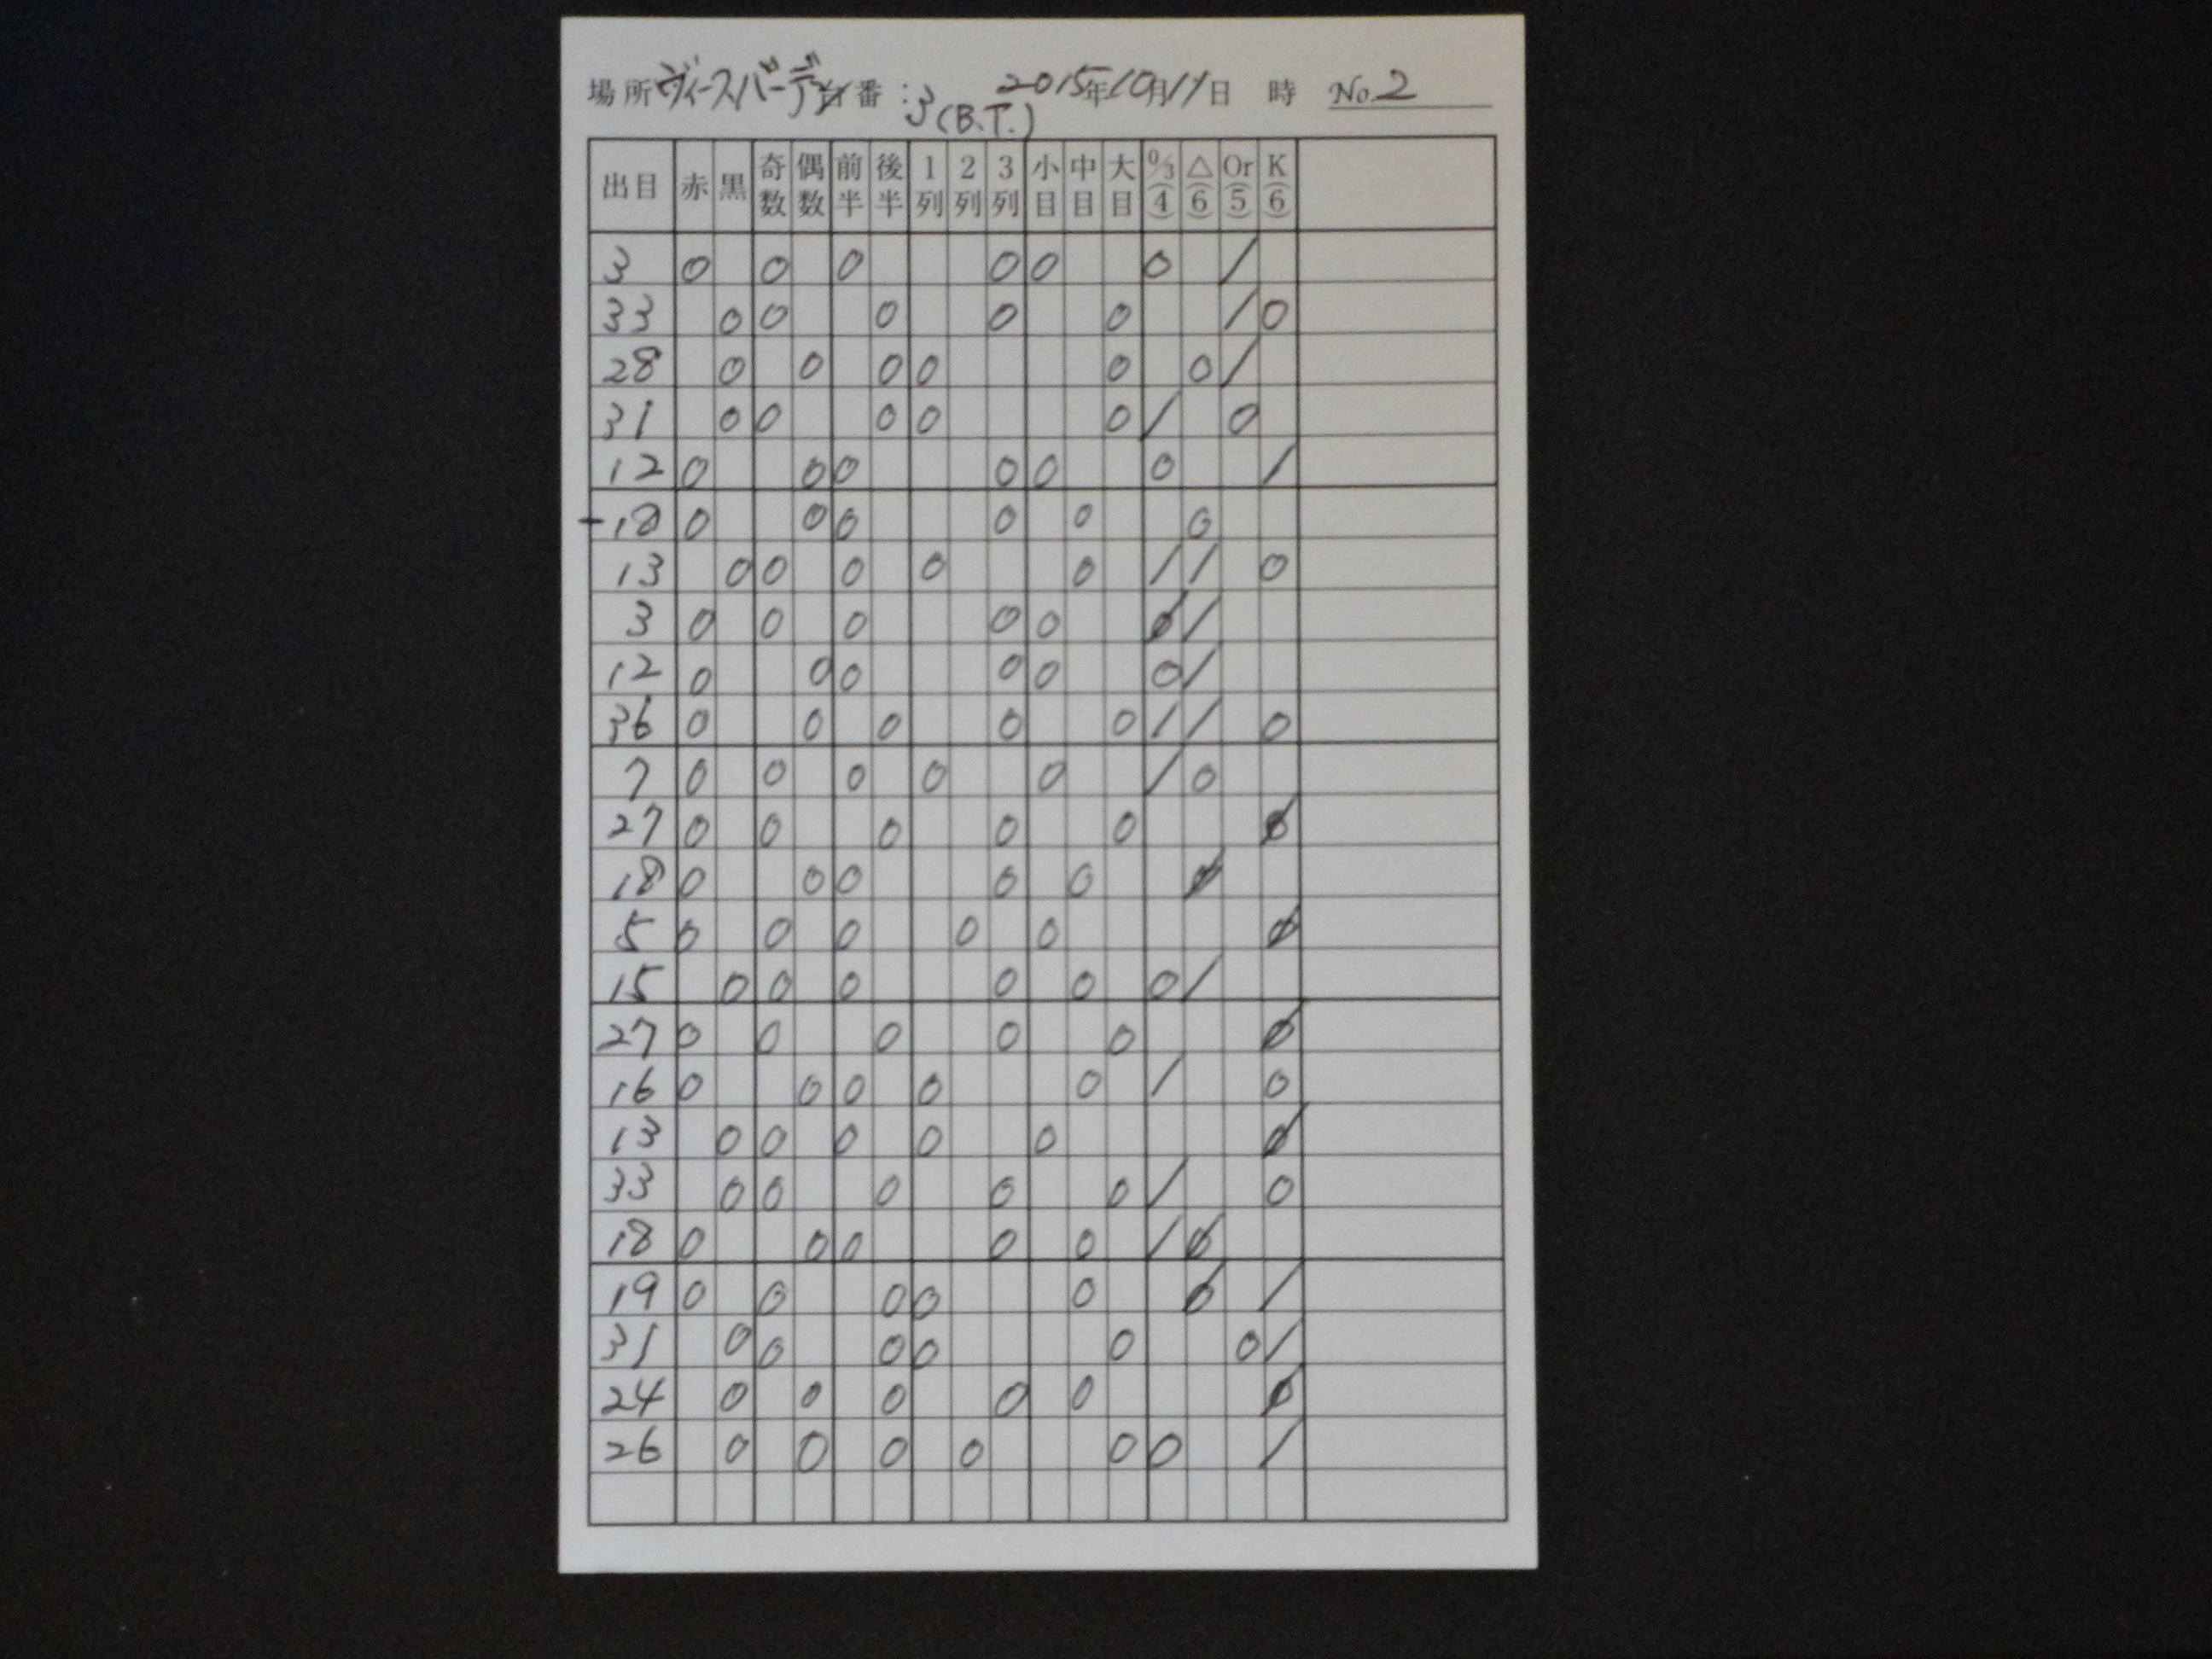 場所 ヴィースバーデン 台番：3 (B.T.) 2015年10月19日 時 No.2
出目 赤 黒 奇数 偶数 前半 後半 1列 2列 3列 小目 中目 大目 0/3(4) △(6) Or(5) K(6)
3 0 0 0 0 0 0 /
33 0 0 0 0 0 / 0
28 0 0 0 0 0 0 /
31 0 0 0 0 0 / 0
12 0 0 0 0 0 0 /
-18 0 0 0 0 0 0
13 0 0 0 0 0 / / 0
3 0 0 0 0 0 ∅ /
12 0 0 0 0 0 0 /
36 0 0 0 0 0 / / 0
7 0 0 0 0 0 / 0
27 0 0 0 0 0 ∅
18 0 0 0 0 0 ∅
5 0 0 0 0 0 ∅
15 0 0 0 0 0 0 /
27 0 0 0 0 0 ∅
16 0 0 0 0 0 / 0
13 0 0 0 0 0 ∅
33 0 0 0 0 0 / 0
18 0 0 0 0 0 / ∅
19 0 0 0 0 0 ∅ /
31 0 0 0 0 0 0 /
24 0 0 0 0 0 ∅
26 0 0 0 0 0 0 /